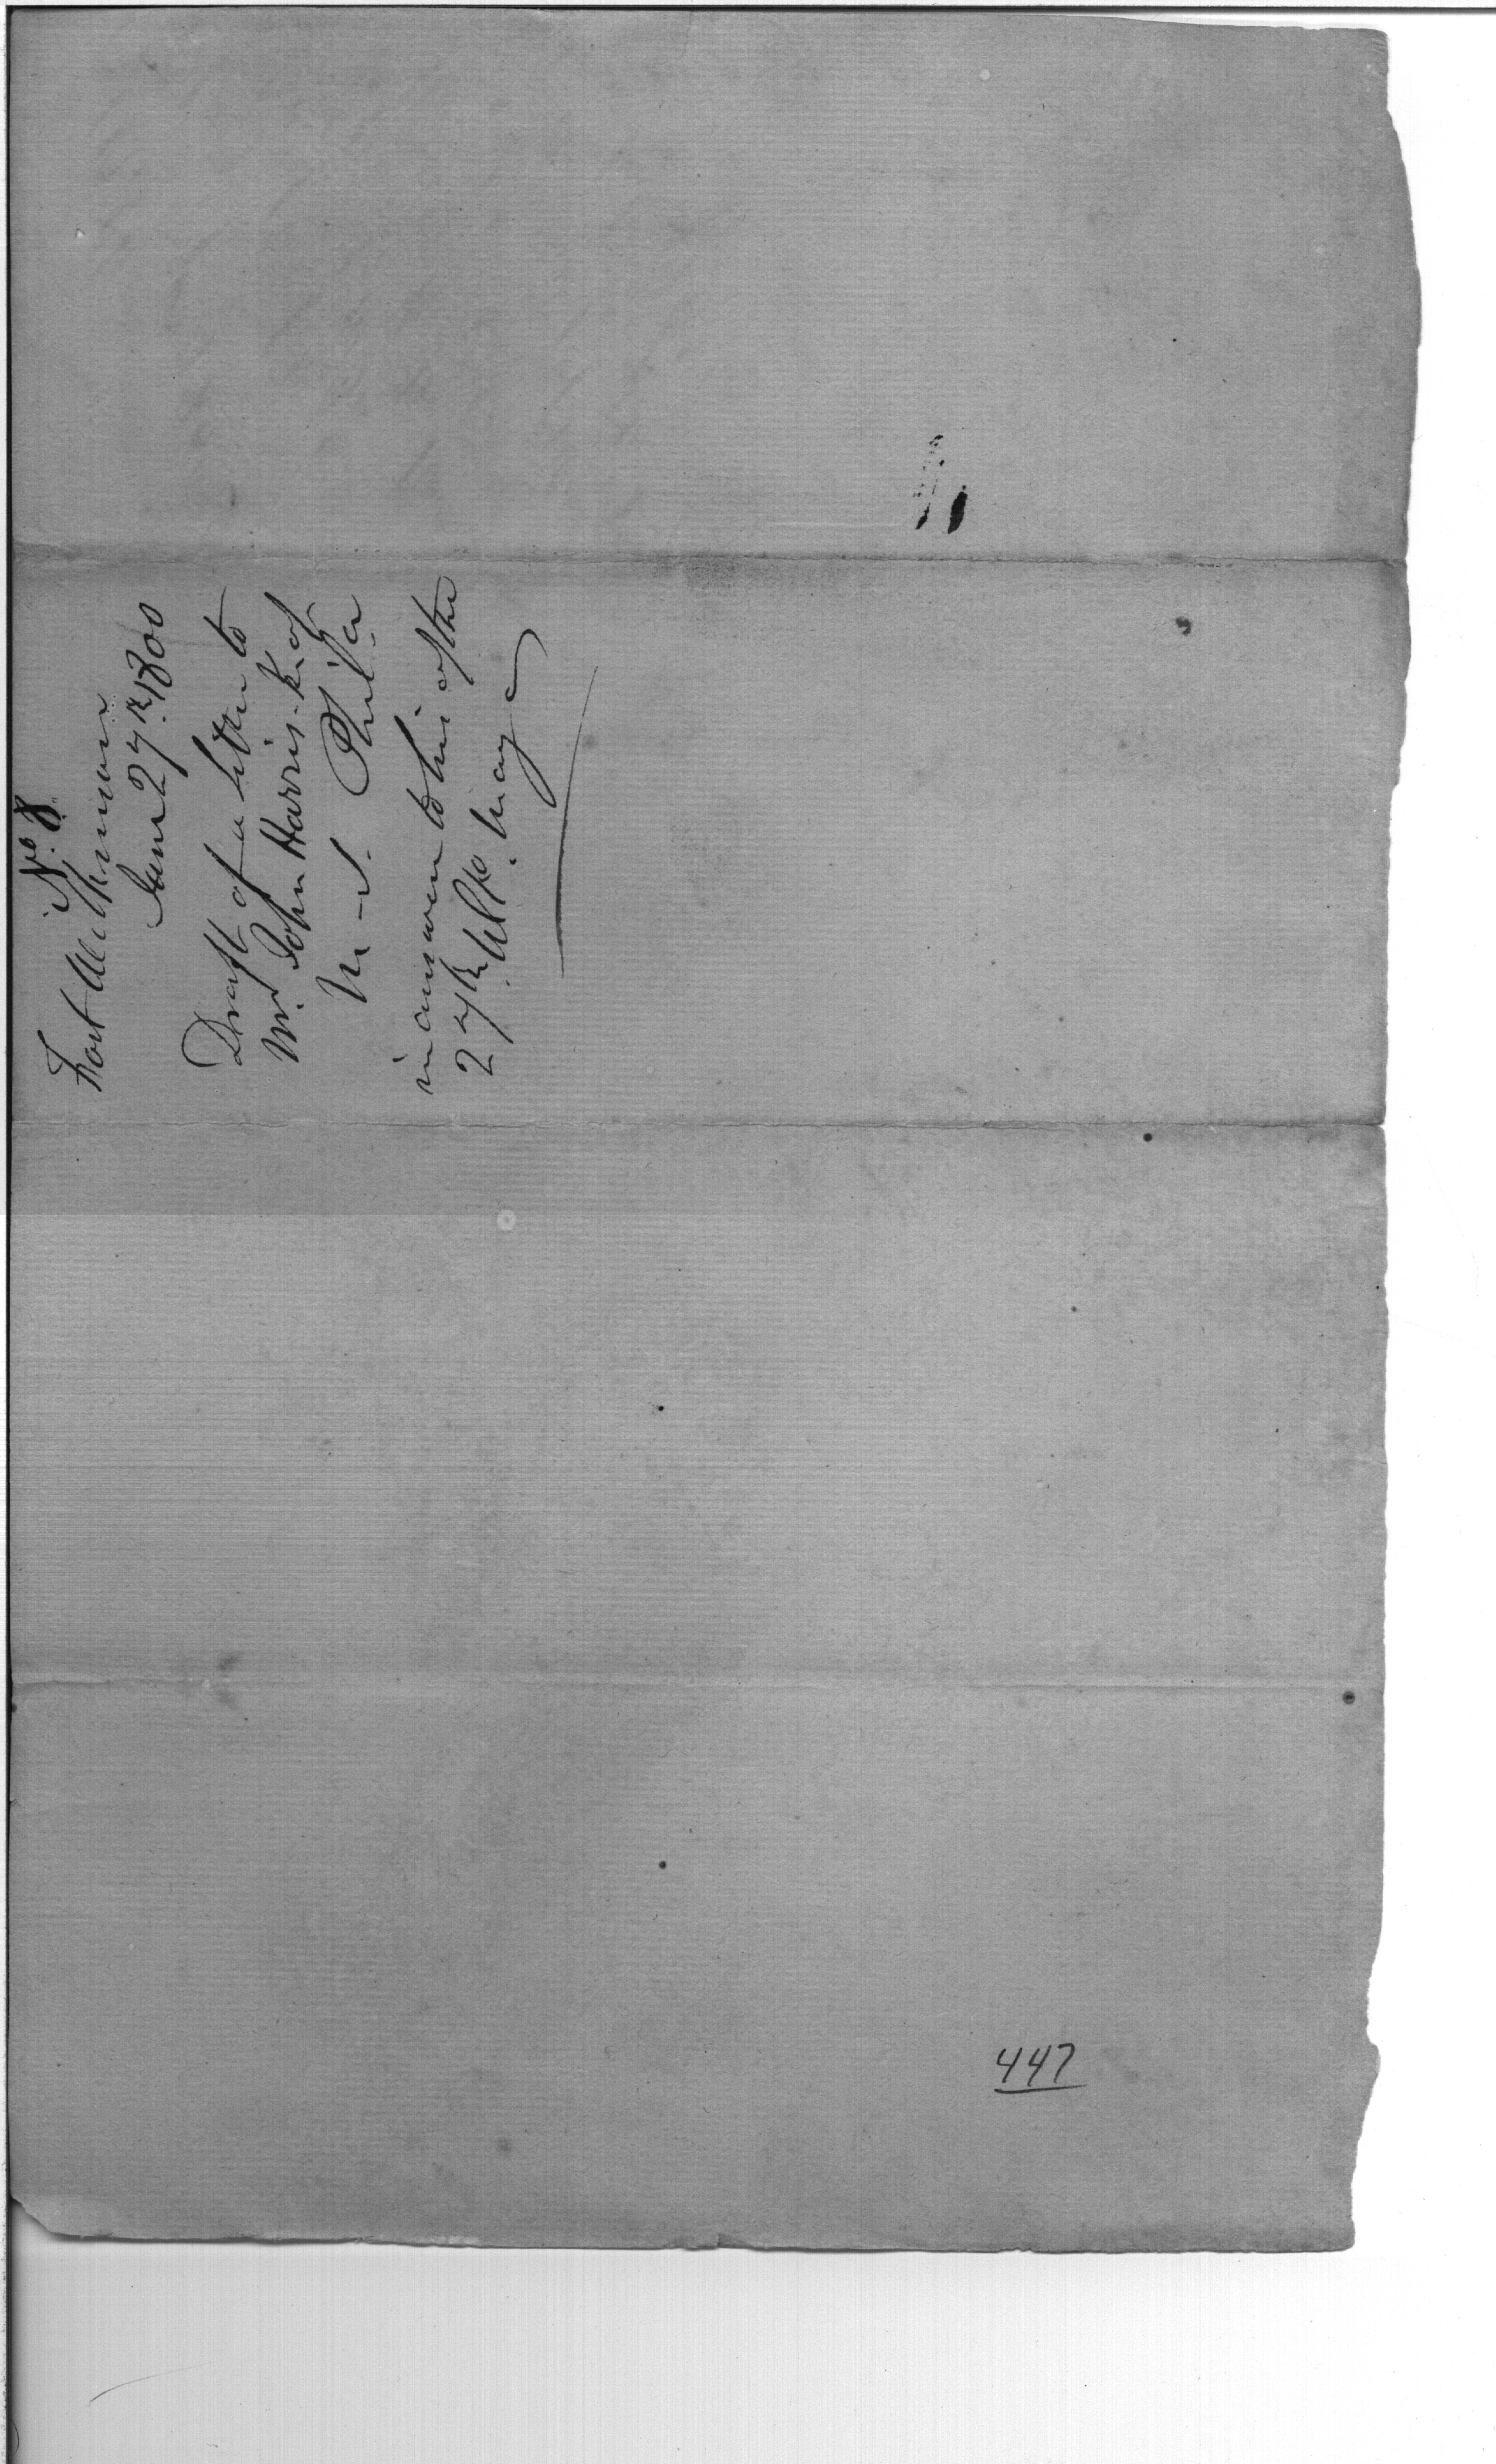 No. 8.
Fort Wilkinson
June 27th. 1800
Draft of a letter to
Mr. John Harris. K. of
M - S. Phila
in answer to his of the
27th. Ulto. May
447